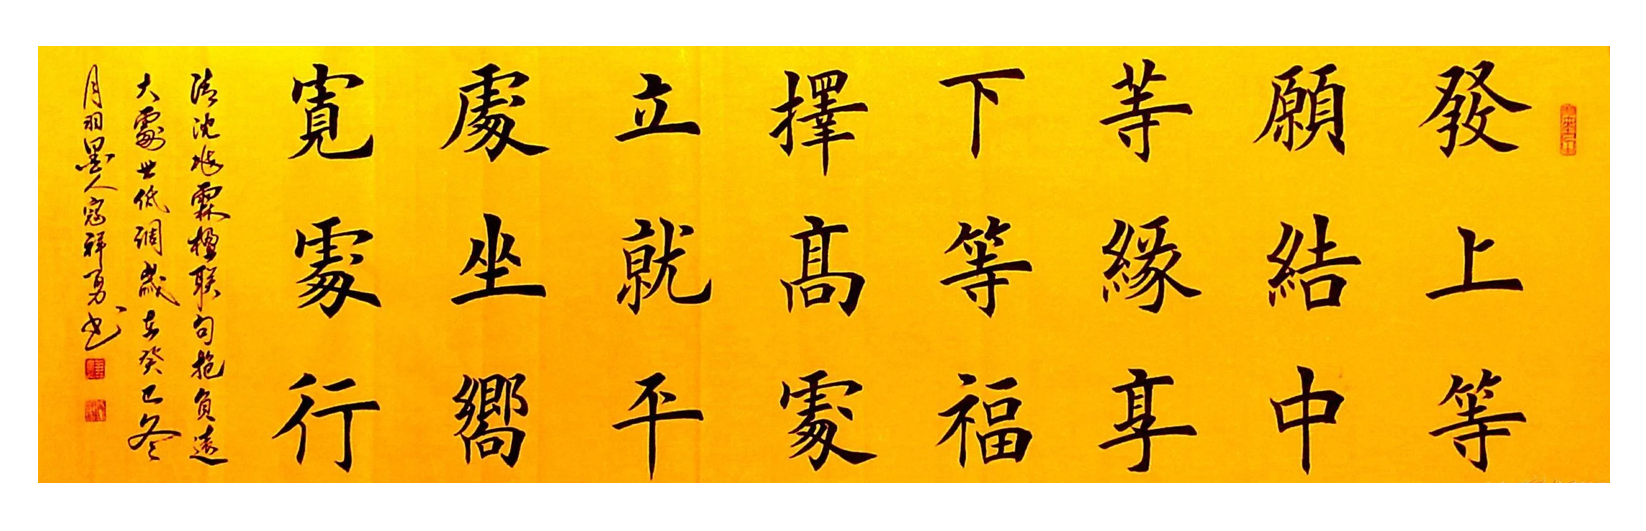 發上等
願結中
等緣享
下等福
擇高處
立就平
處坐嚮
寬處行
清沈兆霖楹联句抱負遠
大處世低調歲在癸巳冬
月羽墨人寇祥勇书